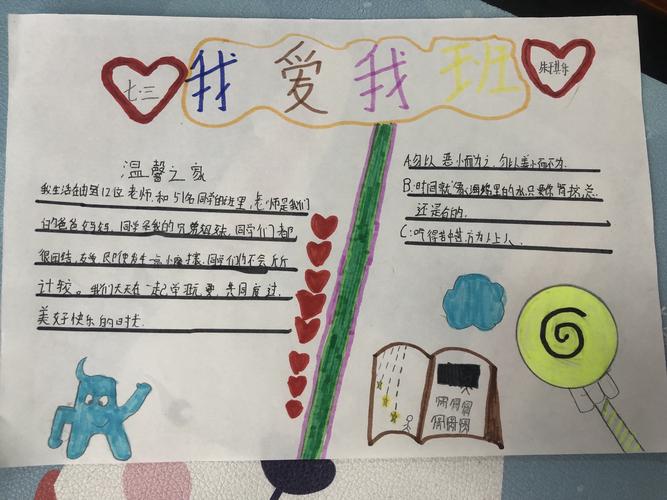 七.三
我爱我班
温馨之家
我生活在由12位老师,和51名同学的班里,老师是我们
的爸爸妈妈,同学是我的兄弟姐妹,同学们都
很团结,友爱,即使发生一点小摩擦,同学们也不会斤斤
计较。我们天天在一起学玩,更,共同度过
美好快乐的日子.
A:勿以恶小而为之,勿以善小而不为.
B:时间就像海绵里的水,只要你肯挤,总
还是有的.
C:吃得苦中苦,方为人上人.